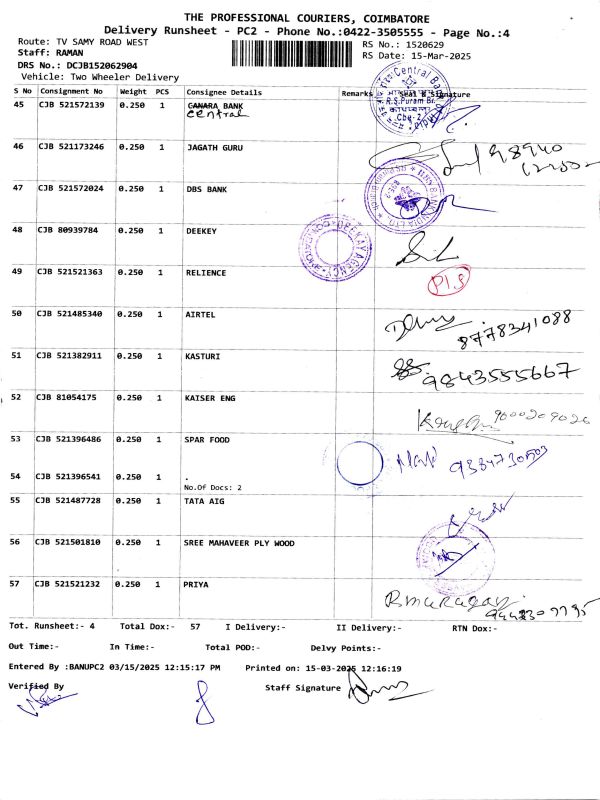 THE PROFESSIONAL COURIERS, COIMBATORE
Delivery Runsheet - PC2 - Phone No.:0422-3505555 - Page No.:4
Route: TV SAMY ROAD WEST RS No.: 1520629
Staff: RAMAN RS Date: 15-Mar-2025
DRS No.: DCJB152062904
Vehicle: Two Wheeler Delivery
S No Consignment No Weight PCS Consignee Details Remarks Seal & Signature
45 CJB 521572139 0.250 1 CANARA BANK
Central
Central Ban
R.S.Puram Br.
Cbe-2
46 CJB 521173246 0.250 1 JAGATH GURU
47 CJB 521572024 0.250 1 DBS BANK
48 CJB 80939784 0.250 1 DEEKEY
DEEKAY AGENCY
49 CJB 521521363 0.250 1 RELIENCE
50 CJB 521485340 0.250 1 AIRTEL
8778341088
51 CJB 521382911 0.250 1 KASTURI
9843555667
52 CJB 81054175 0.250 1 KAISER ENG
53 CJB 521396486 0.250 1 SPAR FOOD
54 CJB 521396541 0.250 1 .
No.Of Docs: 2
55 CJB 521487728 0.250 1 TATA AIG
56 CJB 521501810 0.250 1 SREE MAHAVEER PLY WOOD
57 CJB 521521232 0.250 1 PRIYA
Tot. Runsheet:- 4 Total Dox:- 57 I Delivery:- II Delivery:- RTN Dox:-
Out Time:- In Time:- Total POD:- Delvy Points:-
Entered By :BANUPC2 03/15/2025 12:15:17 PM Printed on: 15-03-2025 12:16:19
Verified By Staff Signature